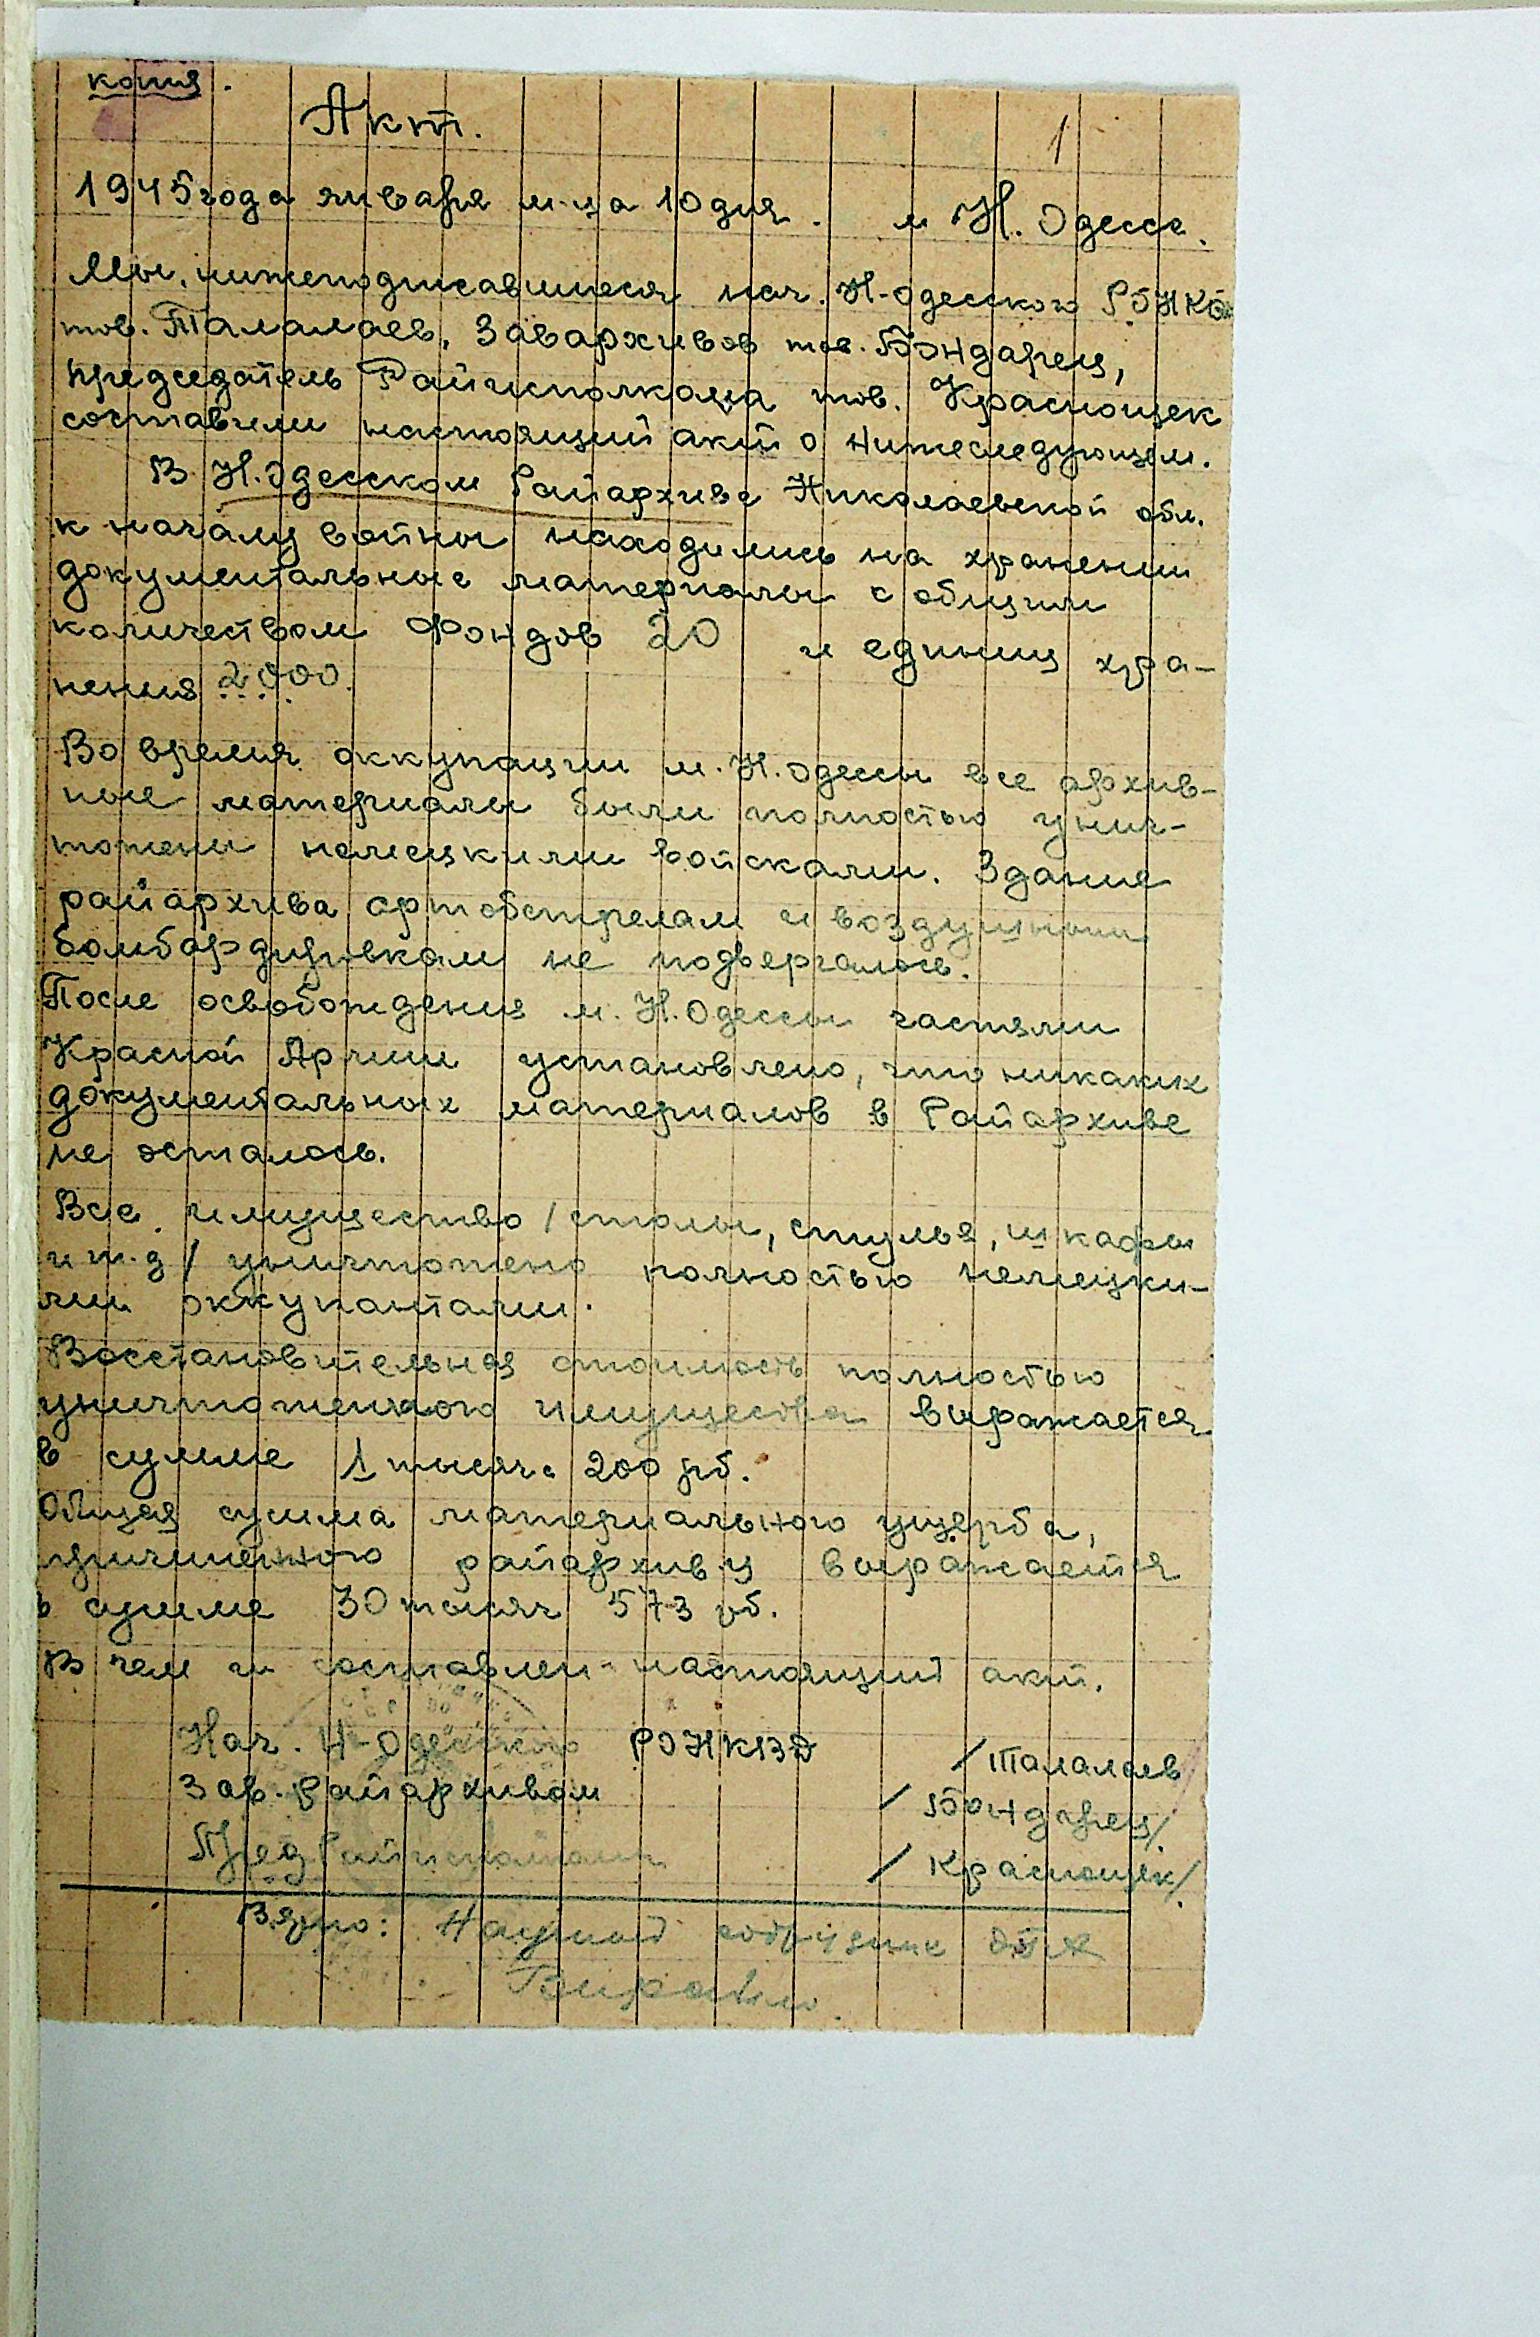 копия.
Акт.
1
1945 года января м-ца 10 дня. м Н. Одесса.
Мы, нижеподписавшиеся нач. Н-Одесского
тов. Талалаев, Заварxивов тов. Бондарец,
председатель Райисполкома тов. Краснощек
составили настоящий акт о нижеследующем.
В Н.Одесском Райархиве Николаевской обл.
к началу войны находились на хранении
документальные материалы с общим
количеством фондов 20 и единиц хра-
нения 2000.
Во время оккупации м. Н.Одессы все архив-
ные материалы были полностью унич-
тожены немецкими войсками. Здание
райархива артобстрелам и воздушным
бомбардировкам не подвергалось.
После освобождения м. Н.Одессы частями
Красной Армии установлено, что никаких
документальных материалов в Райархиве
не осталось.
Все имущество /столы, стулья, шкафы
и т.д/ уничтожено полностью немецки-
ми оккупантами.
Восстановительная стоимость полностью
уничтоженного имущества выражается
в сумме 1 тысяч. 200 рб.
Общая сумма материального ущерба,
причиненного райархиву выражается
в сумме 30 тысяч 573 рб.
В чем и составлен настоящий акт.
Нач. Н-Одесского РОНКВД /Талалаев
Зав. Райархивом /Бондарец/
Пред Райисполкома /Краснощек/
Вярно: Научный